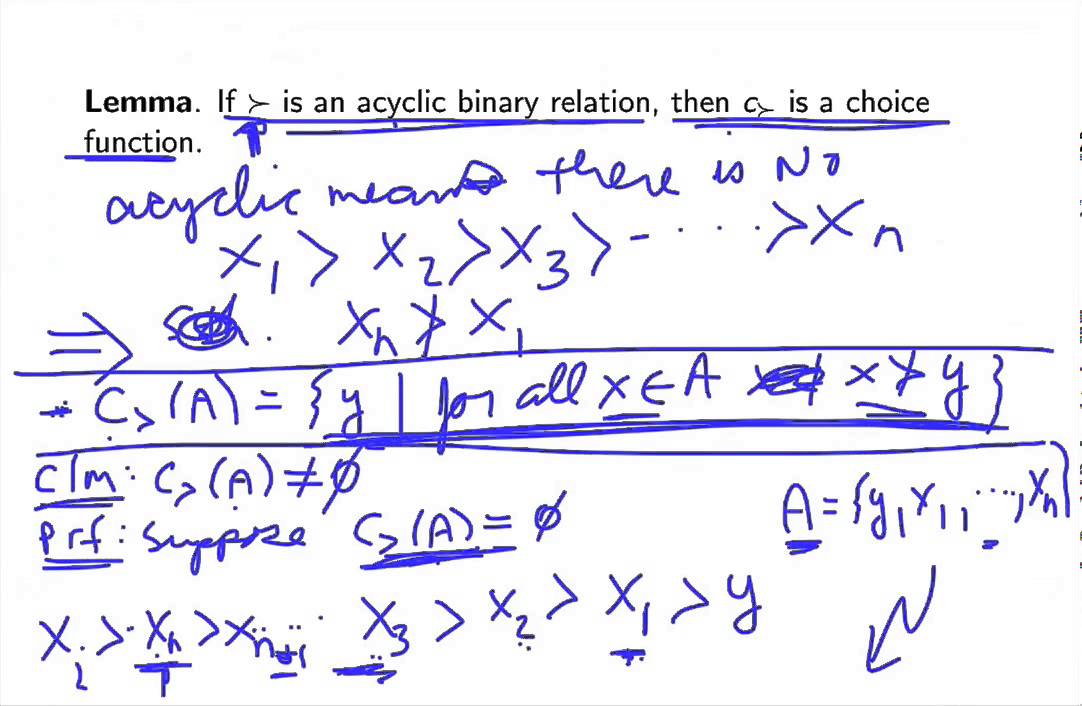 Lemma. If ≻ is an acyclic binary relation, then c≻ is a choice
function.
acyclic means there is No
x₁ > x₂ > x₃ > - · · · · > xₙ
⇒ xₙ ≯ x₁
→ C>(A) = {y | for all x ∈ A x ≯ y}
Clm: C>(A) ≠ ∅
Prf: Suppose C>(A) = ∅ A = {y, x₁, ..., xₙ}
xᵢ > xₙ > xₙ₊₁ ... x₃ > x₂ > x₁ > y